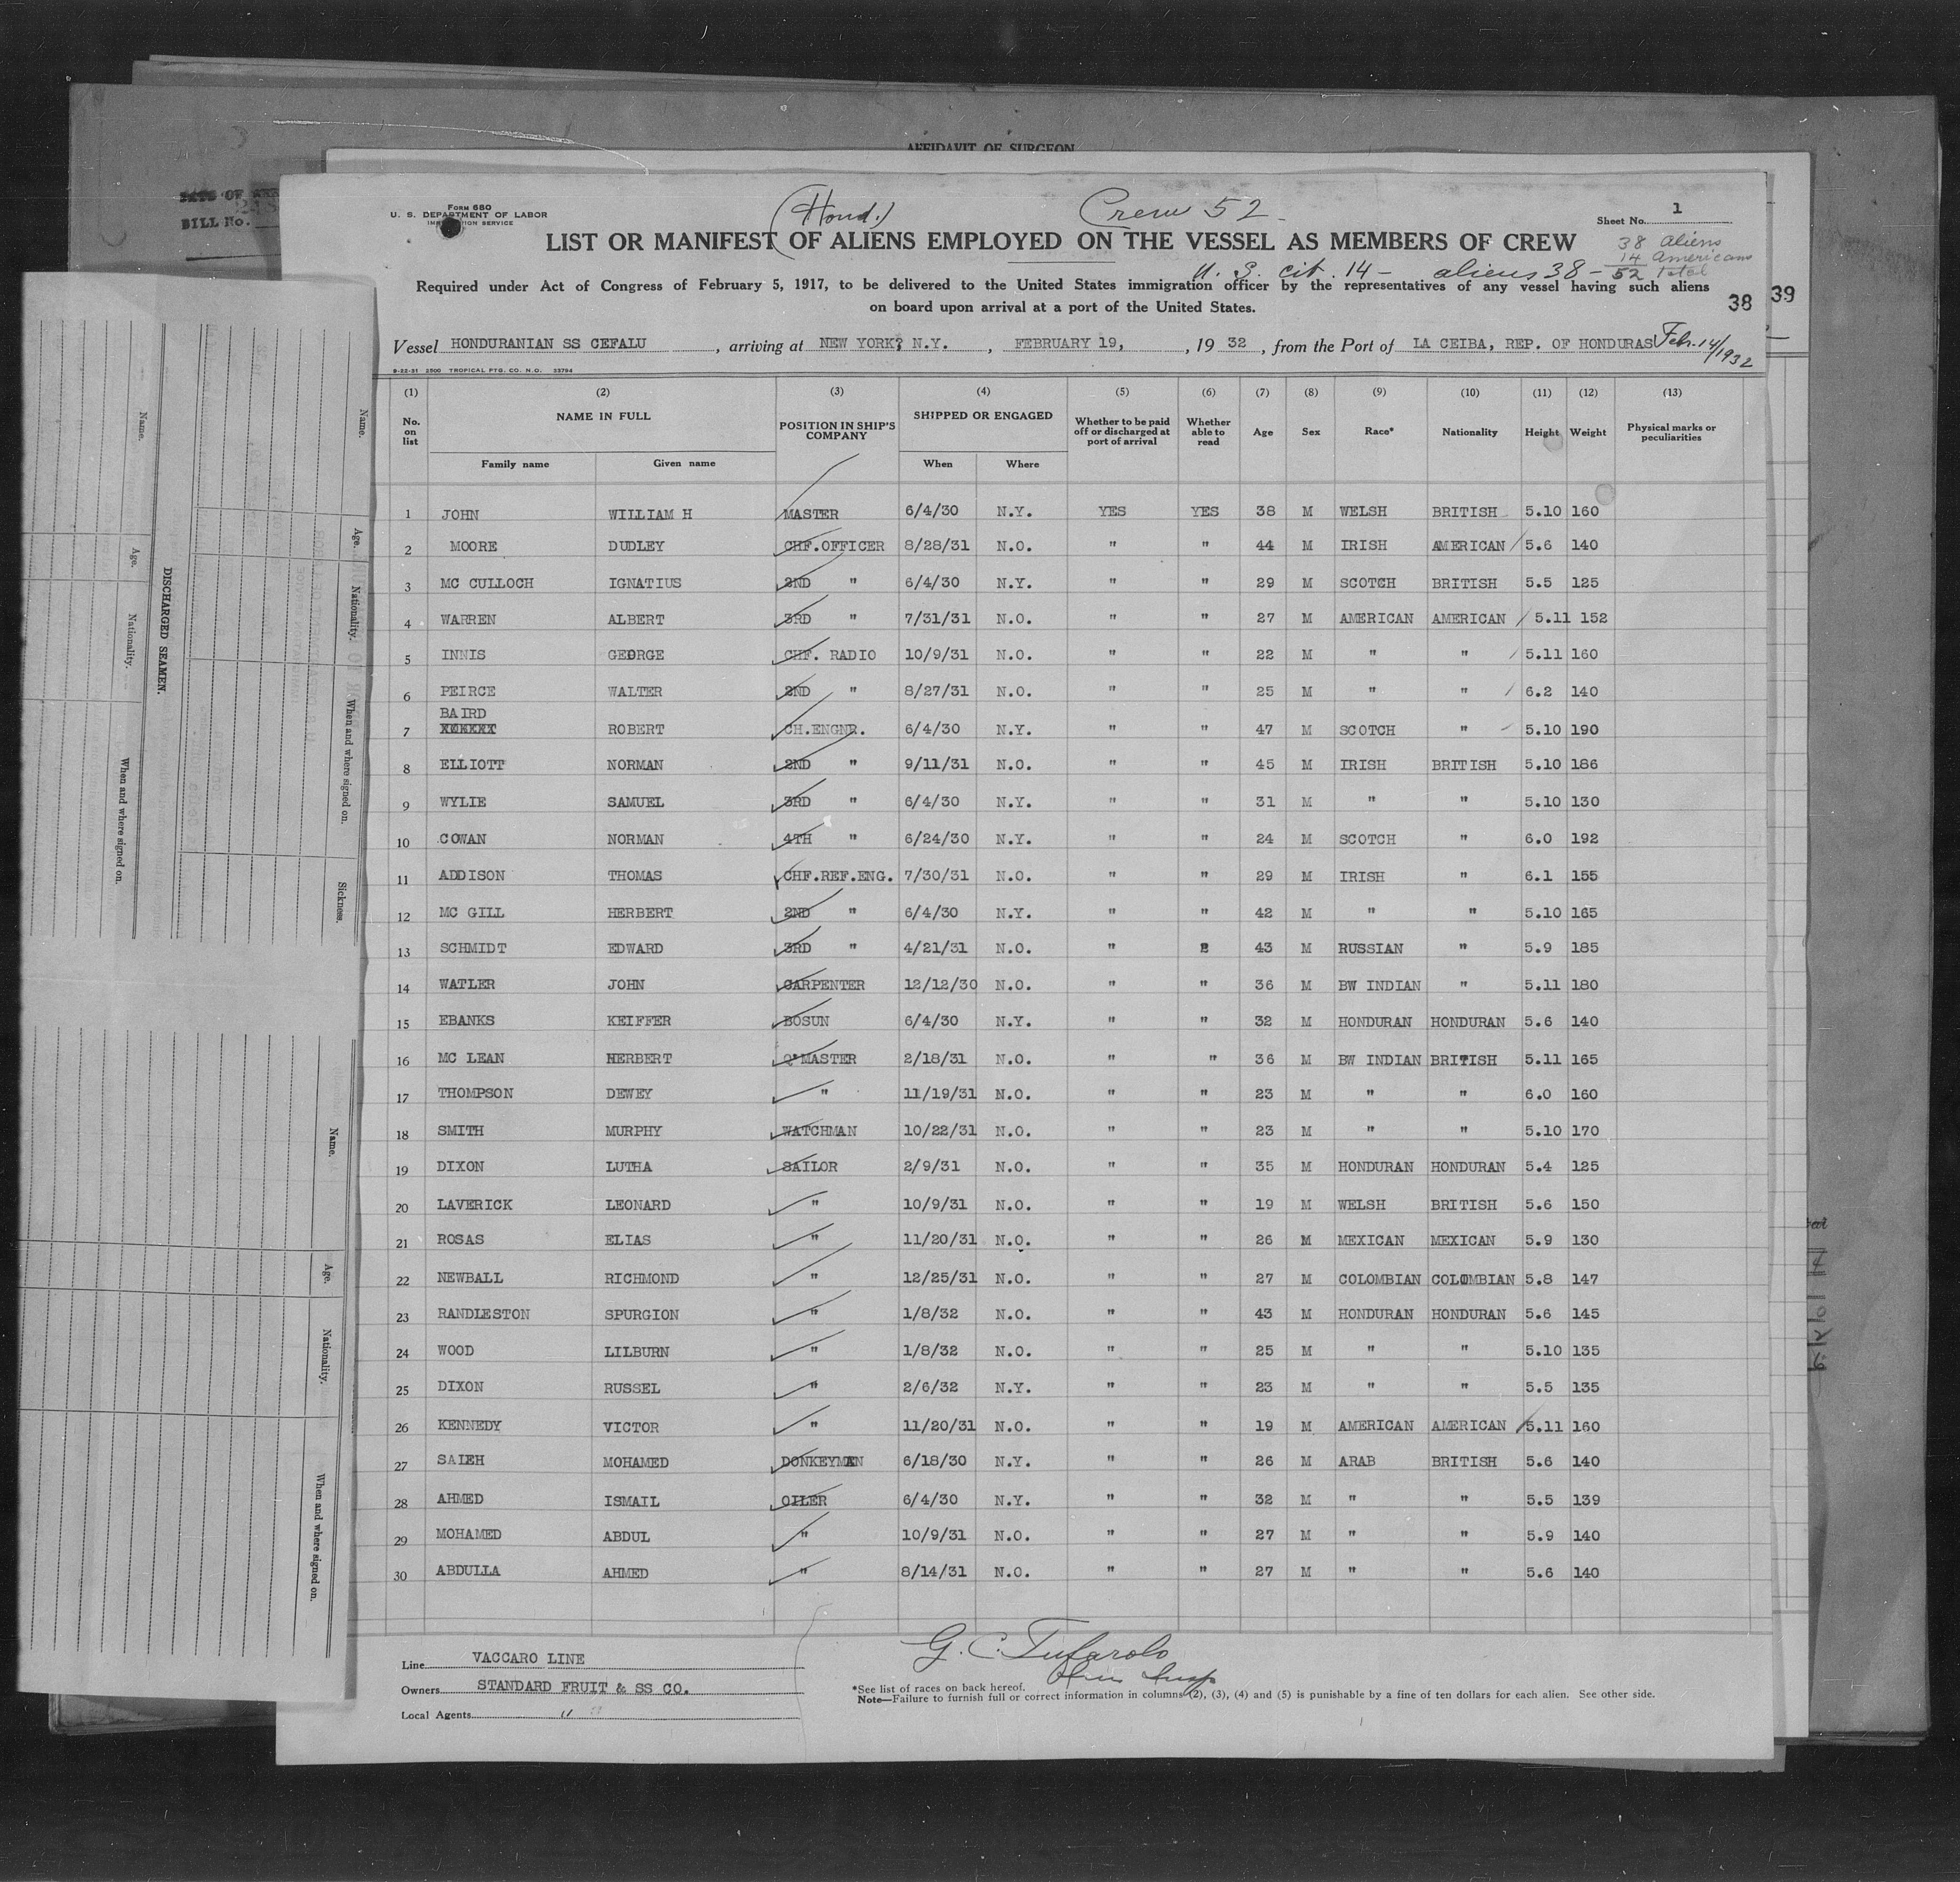 AFFIDAVIT OF SURGEON
BILL No.
Form 680
U. S. DEPARTMENT OF LABOR
IMMIGRATION SERVICE
(Hond.)
Crew 52
Sheet No. 1
LIST OR MANIFEST OF ALIENS EMPLOYED ON THE VESSEL AS MEMBERS OF CREW
38 aliens
14 Americans
52 total
U. S. cit. 14 - aliens 38 -
Required under Act of Congress of February 5, 1917, to be delivered to the United States immigration officer by the representatives of any vessel having such aliens
on board upon arrival at a port of the United States.
38 39
Vessel HONDURANIAN SS CEFALU, arriving at NEW YORK? N.Y., FEBRUARY 19, , 19 32, from the Port of LA CEIBA, REP. OF HONDURAS Feb. 14/1932
8-22-31 2500 TROPICAL PTG. CO. N.O. 23794
(1) (2) (3) (4) (5) (6) (7) (8) (9) (10) (11) (12) (13)
No. on list NAME IN FULL POSITION IN SHIP'S COMPANY SHIPPED OR ENGAGED Whether to be paid off or discharged at port of arrival Whether able to read Age Sex Race* Nationality Height Weight Physical marks or peculiarities
Family name Given name When Where
1 JOHN WILLIAM H MASTER 6/4/30 N.Y. YES YES 38 M WELSH BRITISH 5.10 160
2 MOORE DUDLEY CHF.OFFICER 8/28/31 N.O. " " 44 M IRISH AMERICAN 5.6 140
3 MC CULLOCH IGNATIUS 2ND " 6/4/30 N.Y. " " 29 M SCOTCH BRITISH 5.5 125
4 WARREN ALBERT 3RD " 7/31/31 N.O. " " 27 M AMERICAN AMERICAN 5.11 152
5 INNIS GEORGE CHF. RADIO 10/9/31 N.O. " " 22 M " " 5.11 160
6 PEIRCE WALTER 2ND " 8/27/31 N.O. " " 25 M " " 6.2 140
7 BAIRD ROBERT CH.ENGNR. 6/4/30 N.Y. " " 47 M SCOTCH " 5.10 190
8 ELLIOTT NORMAN 2ND " 9/11/31 N.O. " " 45 M IRISH BRITISH 5.10 186
9 WYLIE SAMUEL 3RD " 6/4/30 N.Y. " " 31 M " " 5.10 130
10 COWAN NORMAN 4TH " 6/24/30 N.Y. " " 24 M SCOTCH " 6.0 192
11 ADDISON THOMAS CHF.REF.ENG. 7/30/31 N.O. " " 29 M IRISH " 6.1 155
12 MC GILL HERBERT 2ND " 6/4/30 N.Y. " " 42 M " " 5.10 165
13 SCHMIDT EDWARD 3RD " 4/21/31 N.O. " 43 M RUSSIAN " 5.9 185
14 WATLER JOHN CARPENTER 12/12/30 N.O. " " 36 M BW INDIAN " 5.11 180
15 EBANKS KEIFFER BOSUN 6/4/30 N.Y. " " 32 M HONDURAN HONDURAN 5.6 140
16 MC LEAN HERBERT Q'MASTER 2/18/31 N.O. " " 36 M BW INDIAN BRITISH 5.11 165
17 THOMPSON DEWEY " 11/19/31 N.O. " " 23 M " " 6.0 160
18 SMITH MURPHY WATCHMAN 10/22/31 N.O. " " 23 M " " 5.10 170
19 DIXON LUTHA SAILOR 2/9/31 N.O. " " 35 M HONDURAN HONDURAN 5.4 125
20 LAVERICK LEONARD " 10/9/31 N.O. " " 19 M WELSH BRITISH 5.6 150
21 ROSAS ELIAS " 11/20/31 N.O. " " 26 M MEXICAN MEXICAN 5.9 130
22 NEWBALL RICHMOND " 12/25/31 N.O. " " 27 M COLOMBIAN COLOMBIAN 5.8 147
23 RANDLESTON SPURGION " 1/8/32 N.O. " " 43 M HONDURAN HONDURAN 5.6 145
24 WOOD LILBURN " 1/8/32 N.O. " " 25 M " " 5.10 135
25 DIXON RUSSEL " 2/6/32 N.Y. " " 23 M " " 5.5 135
26 KENNEDY VICTOR " 11/20/31 N.O. " " 19 M AMERICAN AMERICAN 5.11 160
27 SALEH MOHAMED DONKEYMAN 6/18/30 N.Y. " " 26 M ARAB BRITISH 5.6 140
28 AHMED ISMAIL OILER 6/4/30 N.Y. " " 32 M " " 5.5 139
29 MOHAMED ABDUL " 10/9/31 N.O. " " 27 M " " 5.9 140
30 ABDULLA AHMED " 8/14/31 N.O. " " 27 M " " 5.6 140
Line VACCARO LINE
Owners STANDARD FRUIT & SS CO.
Local Agents "
G. C. Tufarolo
*See list of races on back hereof.
Note—Failure to furnish full or correct information in columns (2), (3), (4) and (5) is punishable by a fine of ten dollars for each alien. See other side.
DISCHARGED SEAMEN.
Name. Age. Nationality. When and where signed on.
Name. Age. Nationality. When and where signed on. Sickness.
Name. Age. Nationality. When and where signed on.